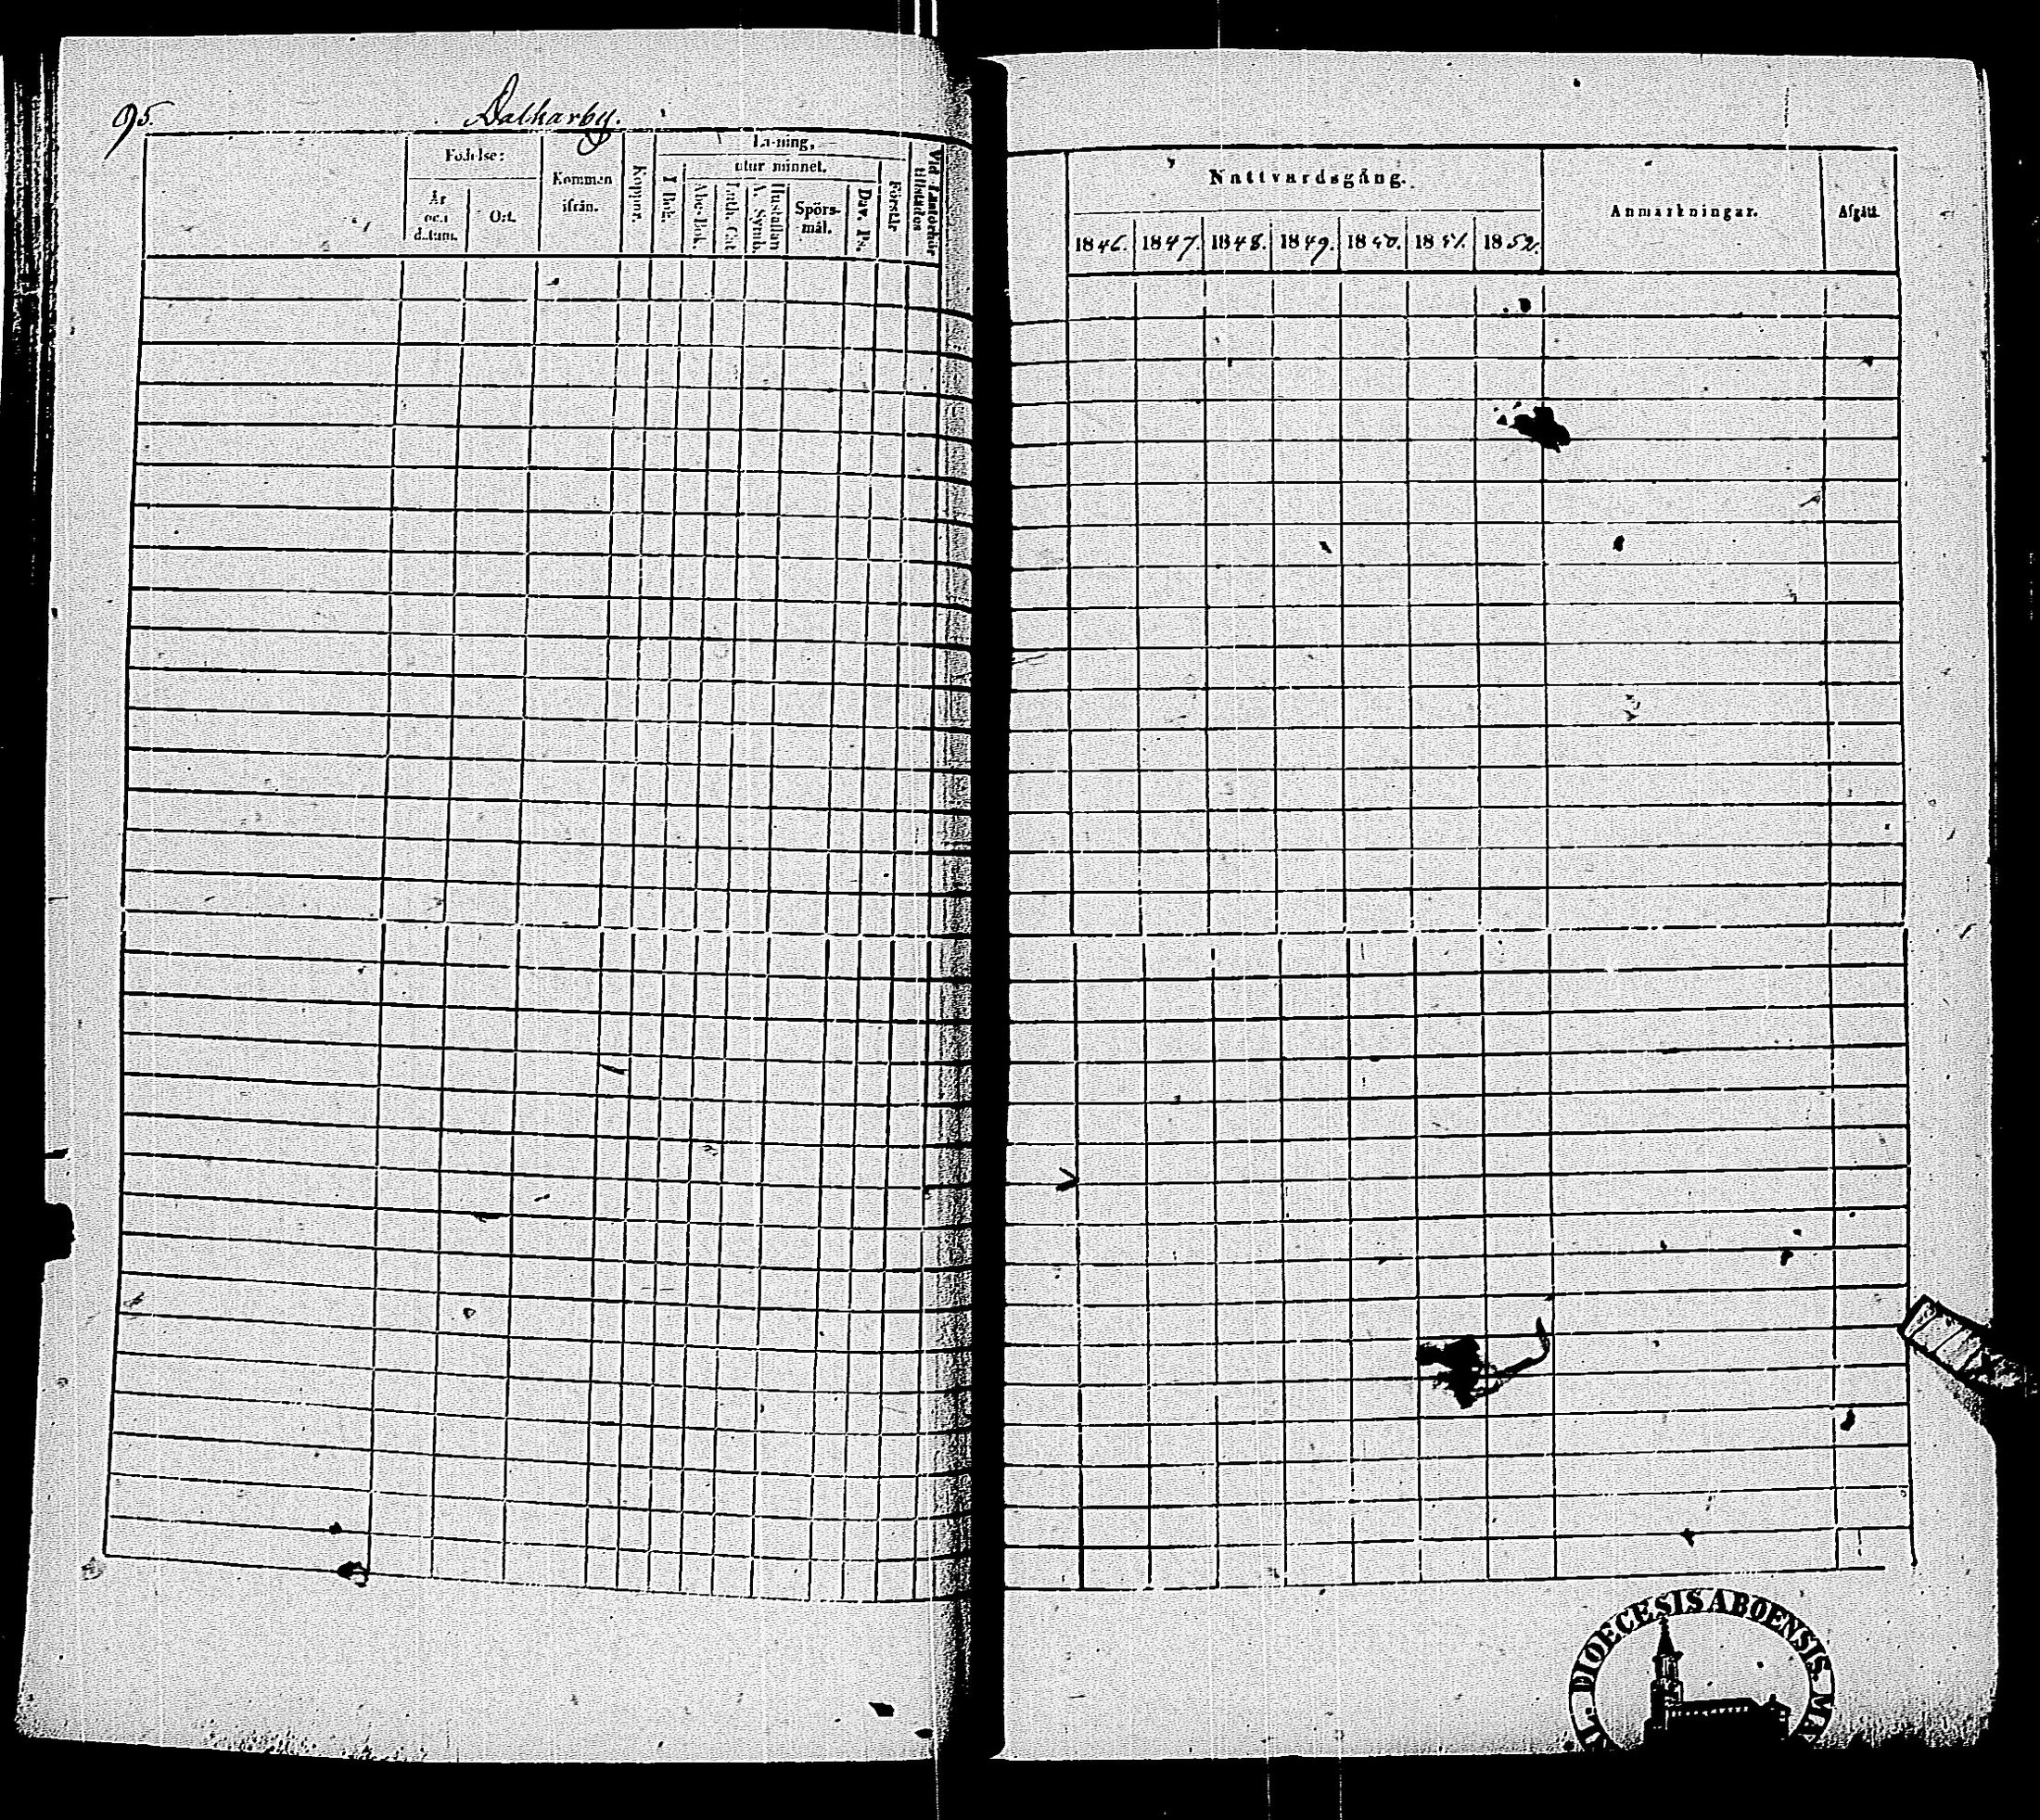 95.
Dalkarby.
Födelse:
År och datum.
Ort.
Kommen ifrån.
Koppor.
Läsning,
utur minnet.
I Bok.
Abc-Bok.
Luth. Cat.
Hustaflan
A. Symb.
Spörs-
mål.
Dav. Ps.
Förstår
Vid Läsförhör
tillstädes
Nattvardsgång.
1846. 1847. 1848. 1849. 1850. 1851. 1852.
Anmärkningar.
Afgått.
DIOECESIS ABOENSIS.